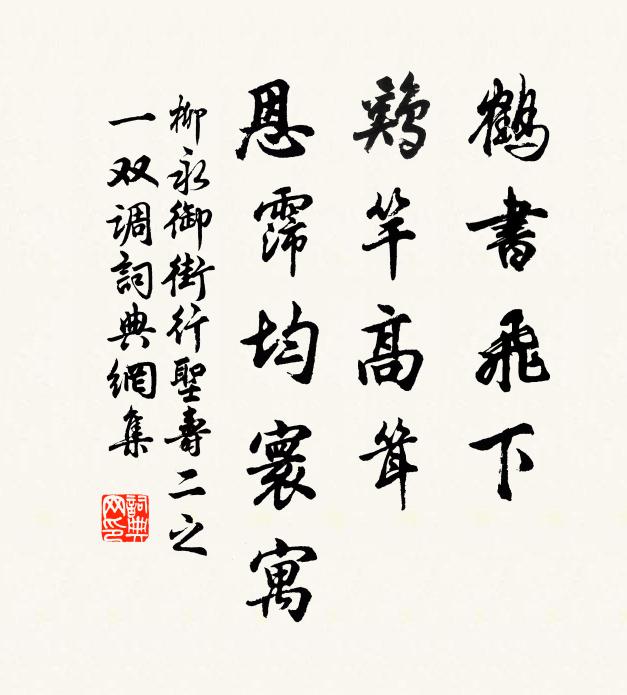 鶴書飛下
鷄竿高聳
恩霈均寰寓
柳永御街行聖壽二之
一双调詞典網集
詞典网印